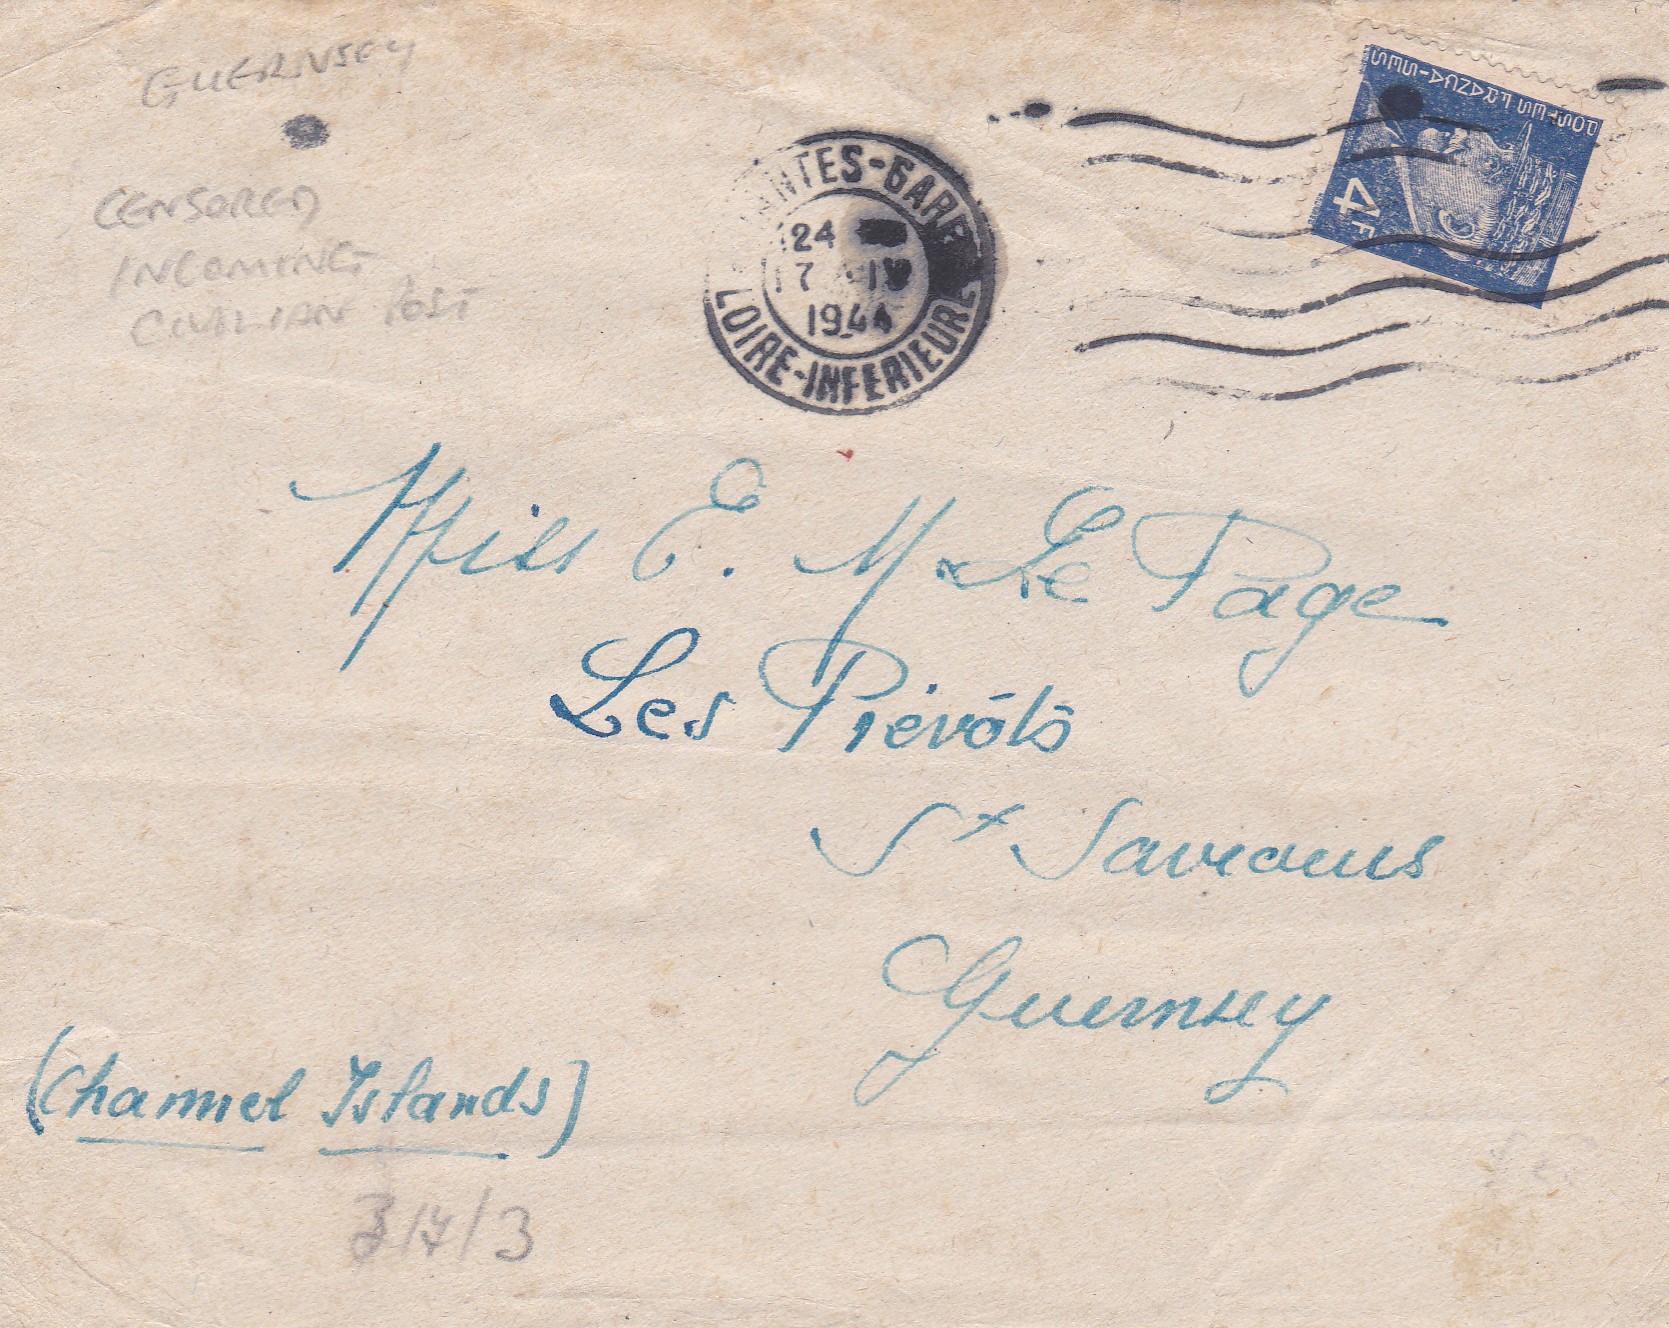 GUERNSEY
CENSORED
INCOMING
CIVILIAN POST
NANTES-GARE
24
17 IV
1944
LOIRE-INFERIEURE
POSTES FRANÇAISES
4F
Miss E. M. Le Page
Les Prévôts
St Saviours
Guernsey
(Channel Islands)
3/4/3